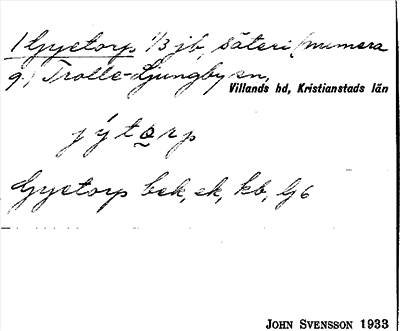 1 Gyetorp 1/3 jb, säteri (numera
g.) Trolle-Ljungby sn,
Villands hd, Kristianstads län
jýtorp
Gyetorp bek, ek, kb, G6
JOHN SVENSSON 1933